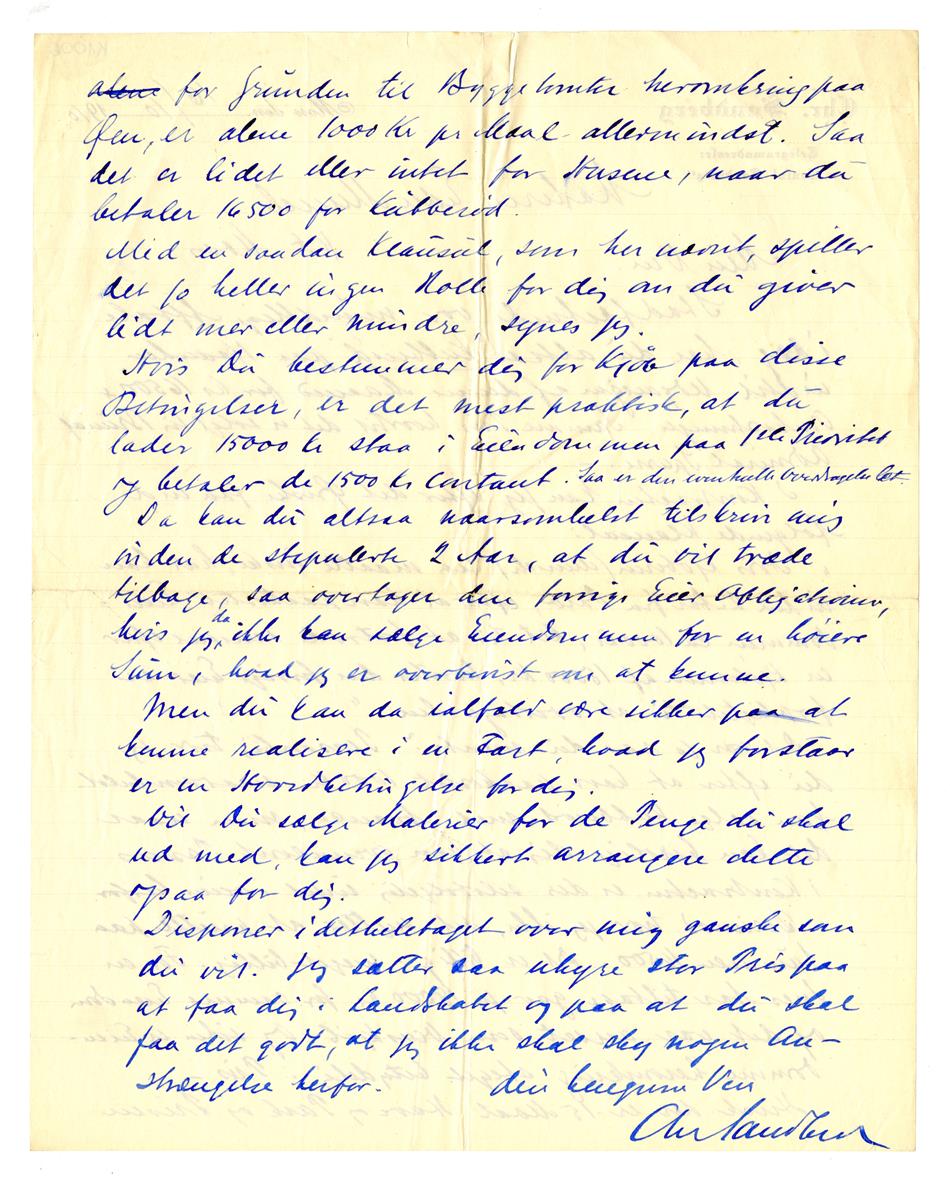 alene for Grunden til Byggetomter heromkring paa
Øen, er alene 1000 Kr pr Maal allermindst. Saa
det er lidet eller intet for Husene, naar du
betaler 16500 for Kubberød.
Med en saadan Klausul, som her nævnt, spiller
det jo heller ingen Rolle for dig om du giver
lidt mer eller mindre, synes jeg.
Hvis Du bestemmer dig for Kjøb paa disse
Betingelser, er det mest praktisk, at du
lader 15000 Kr staa i Eiendommen paa 1ste Prioritet
og betaler de 1500 Kr contant. Saa er den eventuelle Overdragelse let.
Da kan du altsaa naarsomhelst tilskrive mig
inden de stipulerte 2 Aar, at du vil træde
tilbage, saa overtager den forrige Eier Obligationen,
hvis jeg da ikke kan sælge Eiendommen for en høiere
Sum, hvad jeg er overbevist om at kunne.
Men du kan da ialfald være sikker paa at
kunne realisere i en Fart, hvad jeg forstaar
er en Hovedbetingelse for dig.
Vil Du sælge Malerier for de Penge du skal
ud med, kan jeg sikkert arrangere dette
ogsaa for dig.
Disponer i det hele taget over mig ganske som
du vil. Jeg sætter saa uhyre stor Pris paa
at faa dig i Landskabet og paa at du skal
faa det godt, at jeg ikke skal sky nogen An-
strængelse herfor. din hengivne Ven
Chr Sandberg
Chr. Sandberg